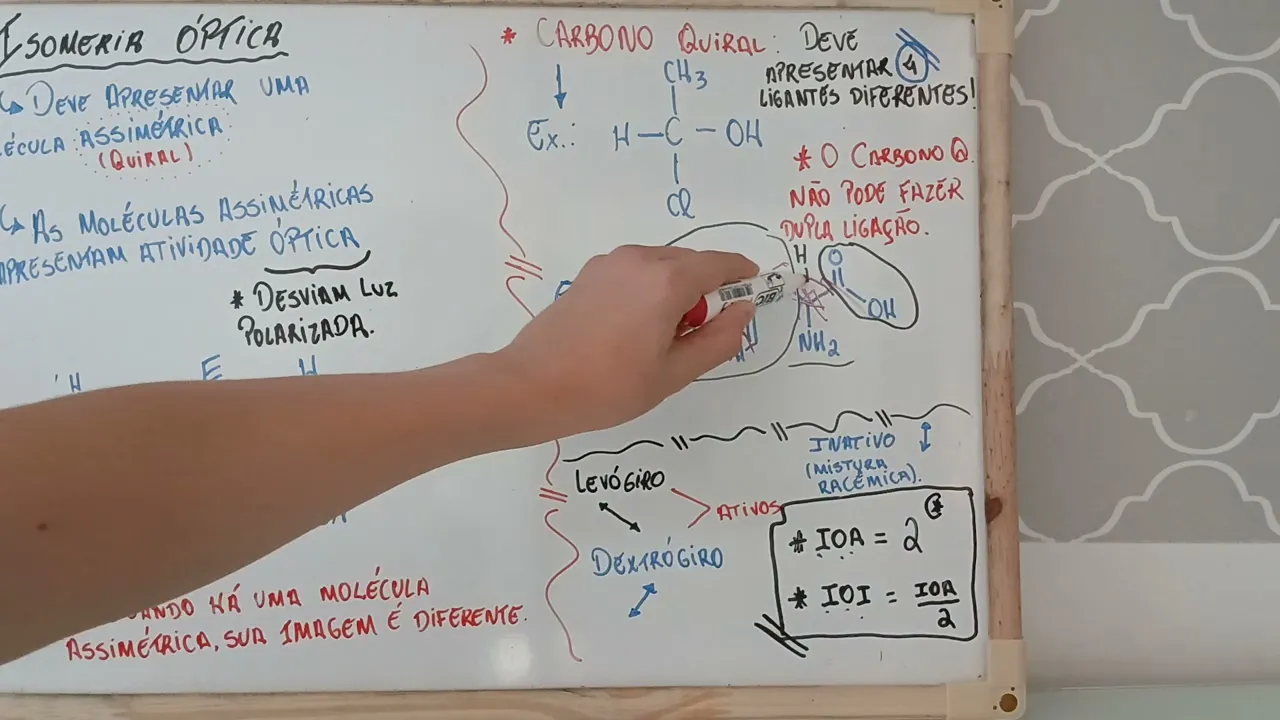 ISOMERIA ÓPTICA
DEVE APRESENTAR UMA
ÉCULA ASSIMÉTRICA
(QUIRAL)
AS MOLÉCULAS ASSIMÉTRICAS
APRESENTAM ATIVIDADE ÓPTICA
* DESVIAM LUZ
POLARIZADA.
H E H
ANDO HÁ UMA MOLÉCULA
ASSIMÉTRICA, SUA IMAGEM É DIFERENTE.
* CARBONO QUIRAL: DEVE
APRESENTAR 4
LIGANTES DIFERENTES!
CH3
EX.: H—C—OH
Cl
* O CARBONO Q.
NÃO PODE FAZER
DUPLA LIGAÇÃO.
H
O
OH
NH2
BIC
INATIVO
(MISTURA
RACÊMICA).
LEVÓGIRO
ATIVOS
DEXTRÓGIRO
* IOA = 2*
* IOI = IOA
2